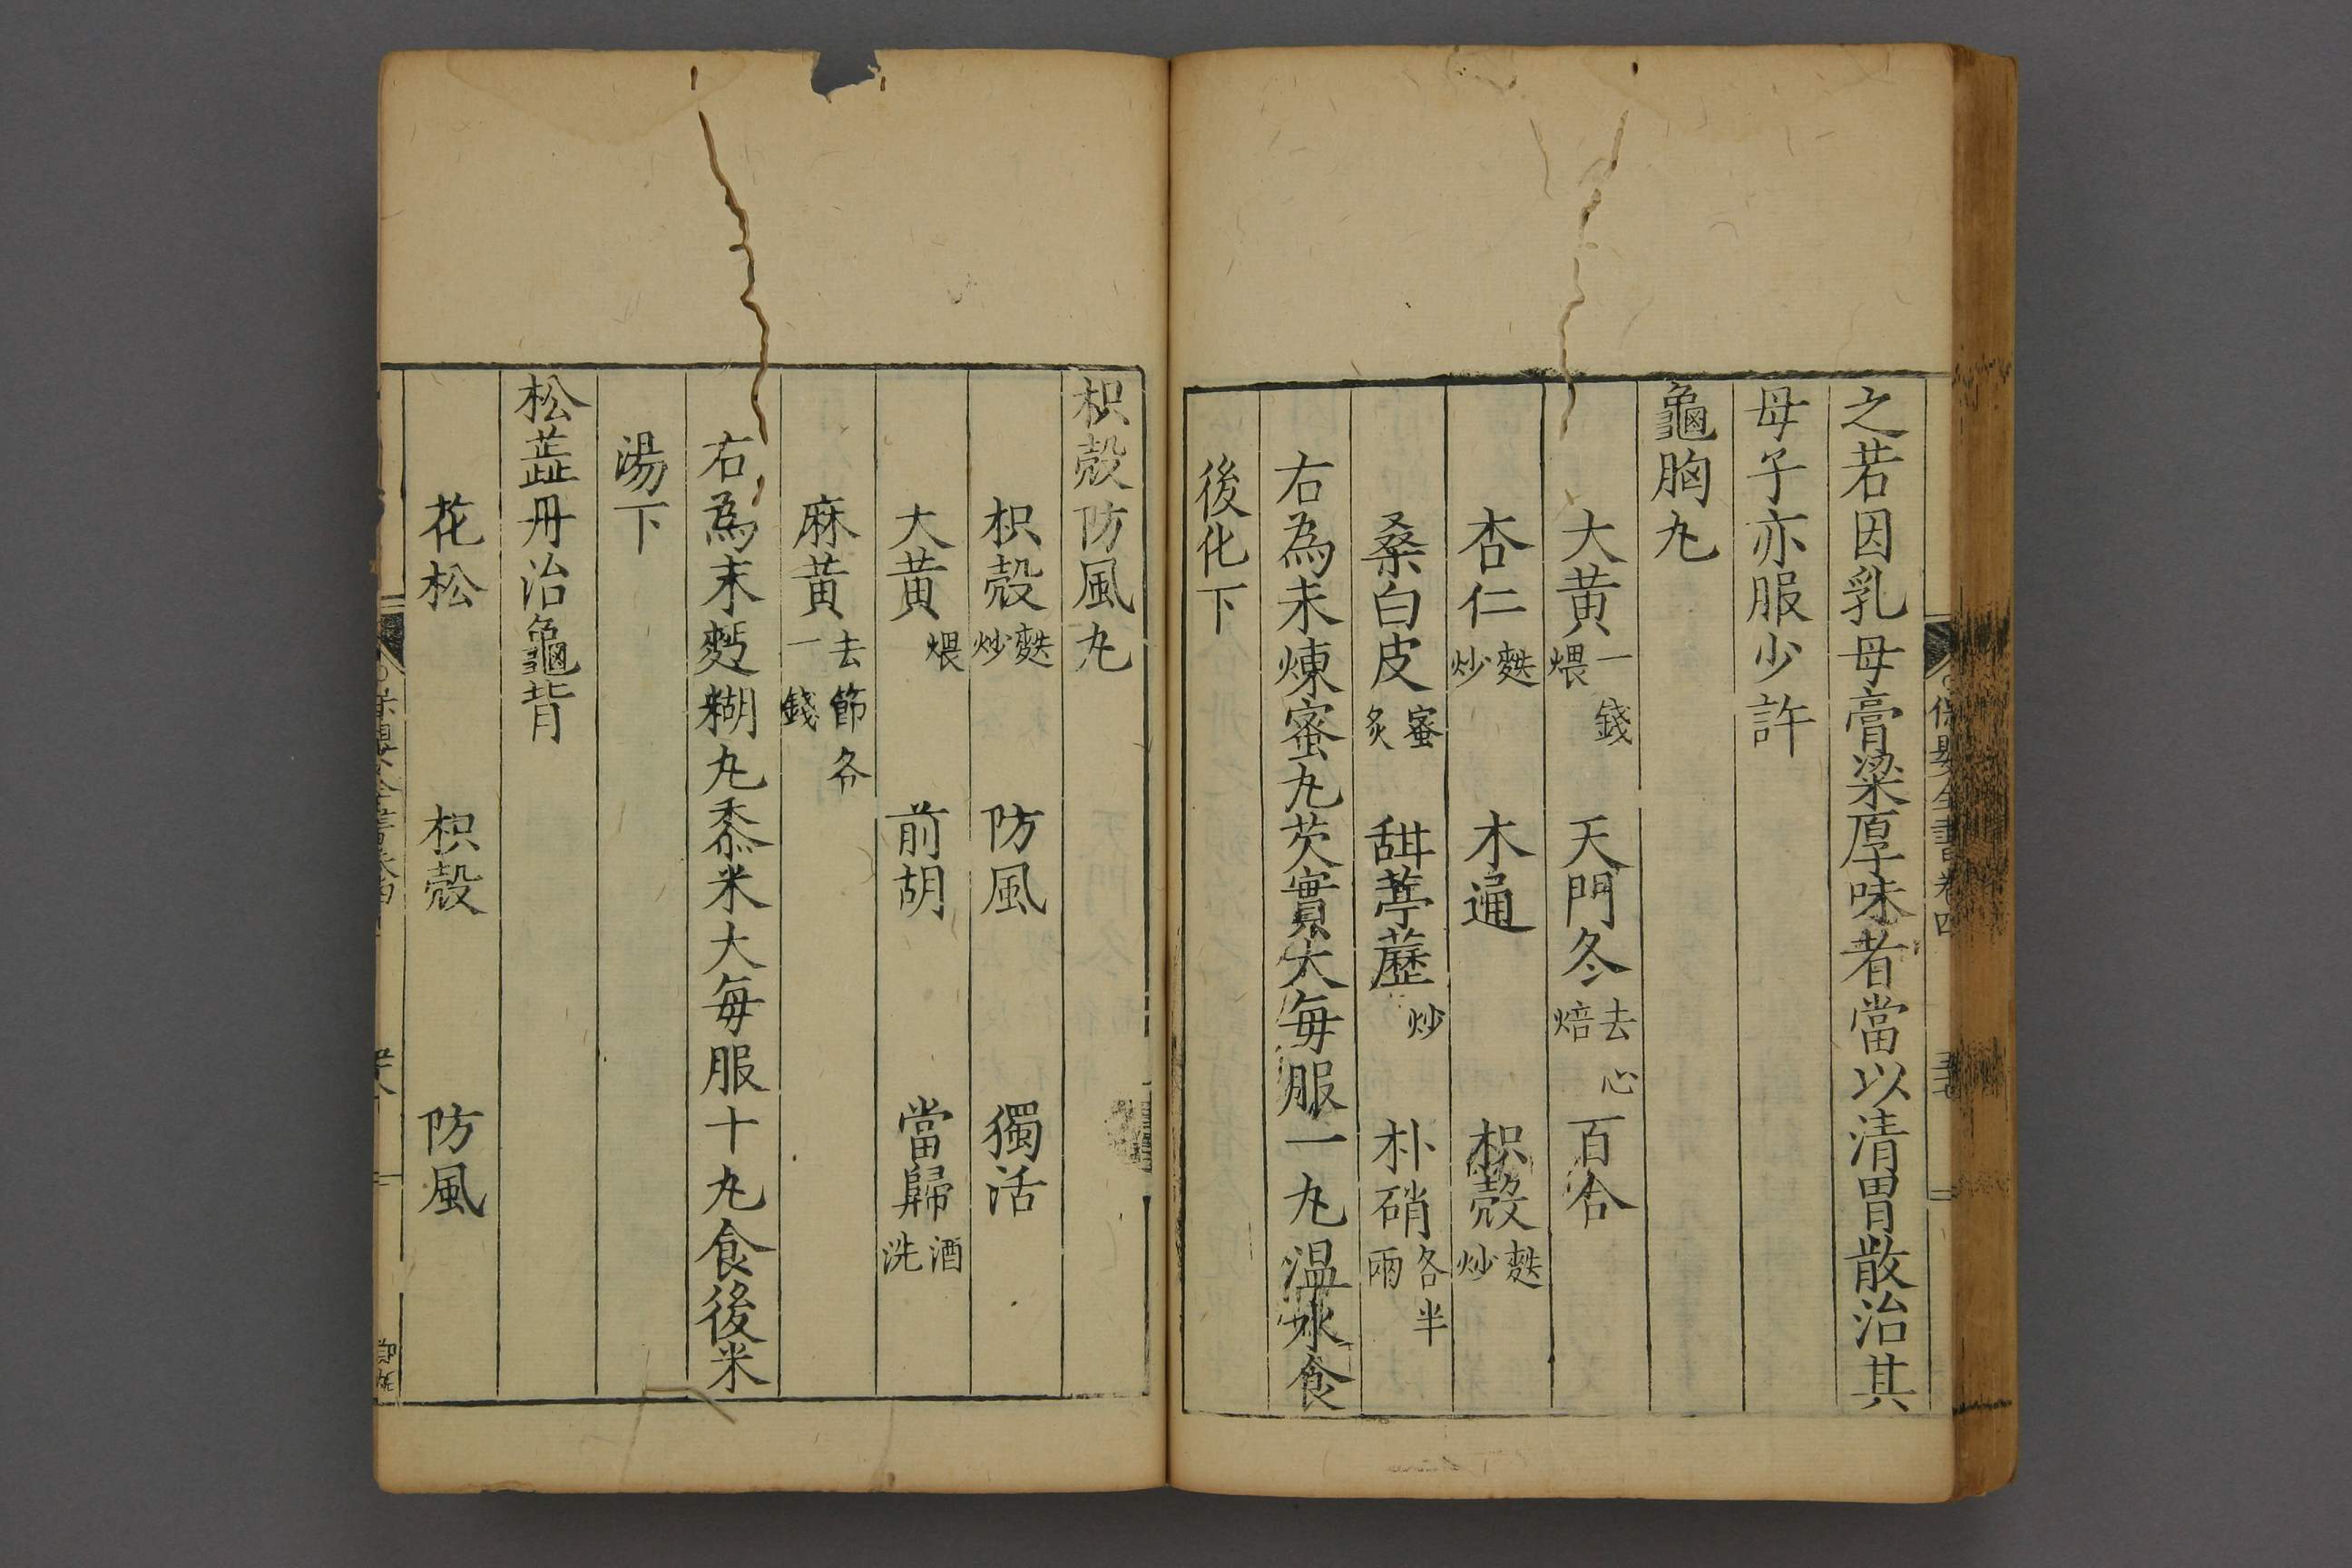 保嬰全書卷四
之若因乳母膏粱厚味者當以清胃散治其
母子亦服少許
龜胸丸
大黃一錢煨 天門冬去心焙 百合
杏仁麩炒 木通 枳殼麩炒
桑白皮蜜炙 甜葶藶炒 朴硝各半兩
右為末煉蜜丸芡實大每服一丸温水食
後化下
枳殼防風丸
枳殼麩炒 防風 獨活
大黃煨 前胡 當歸酒洗
麻黃去節各一錢
右為末麪糊丸黍米大每服十丸食後米
湯下
松蘂丹治龜背
花松 枳殼 防風